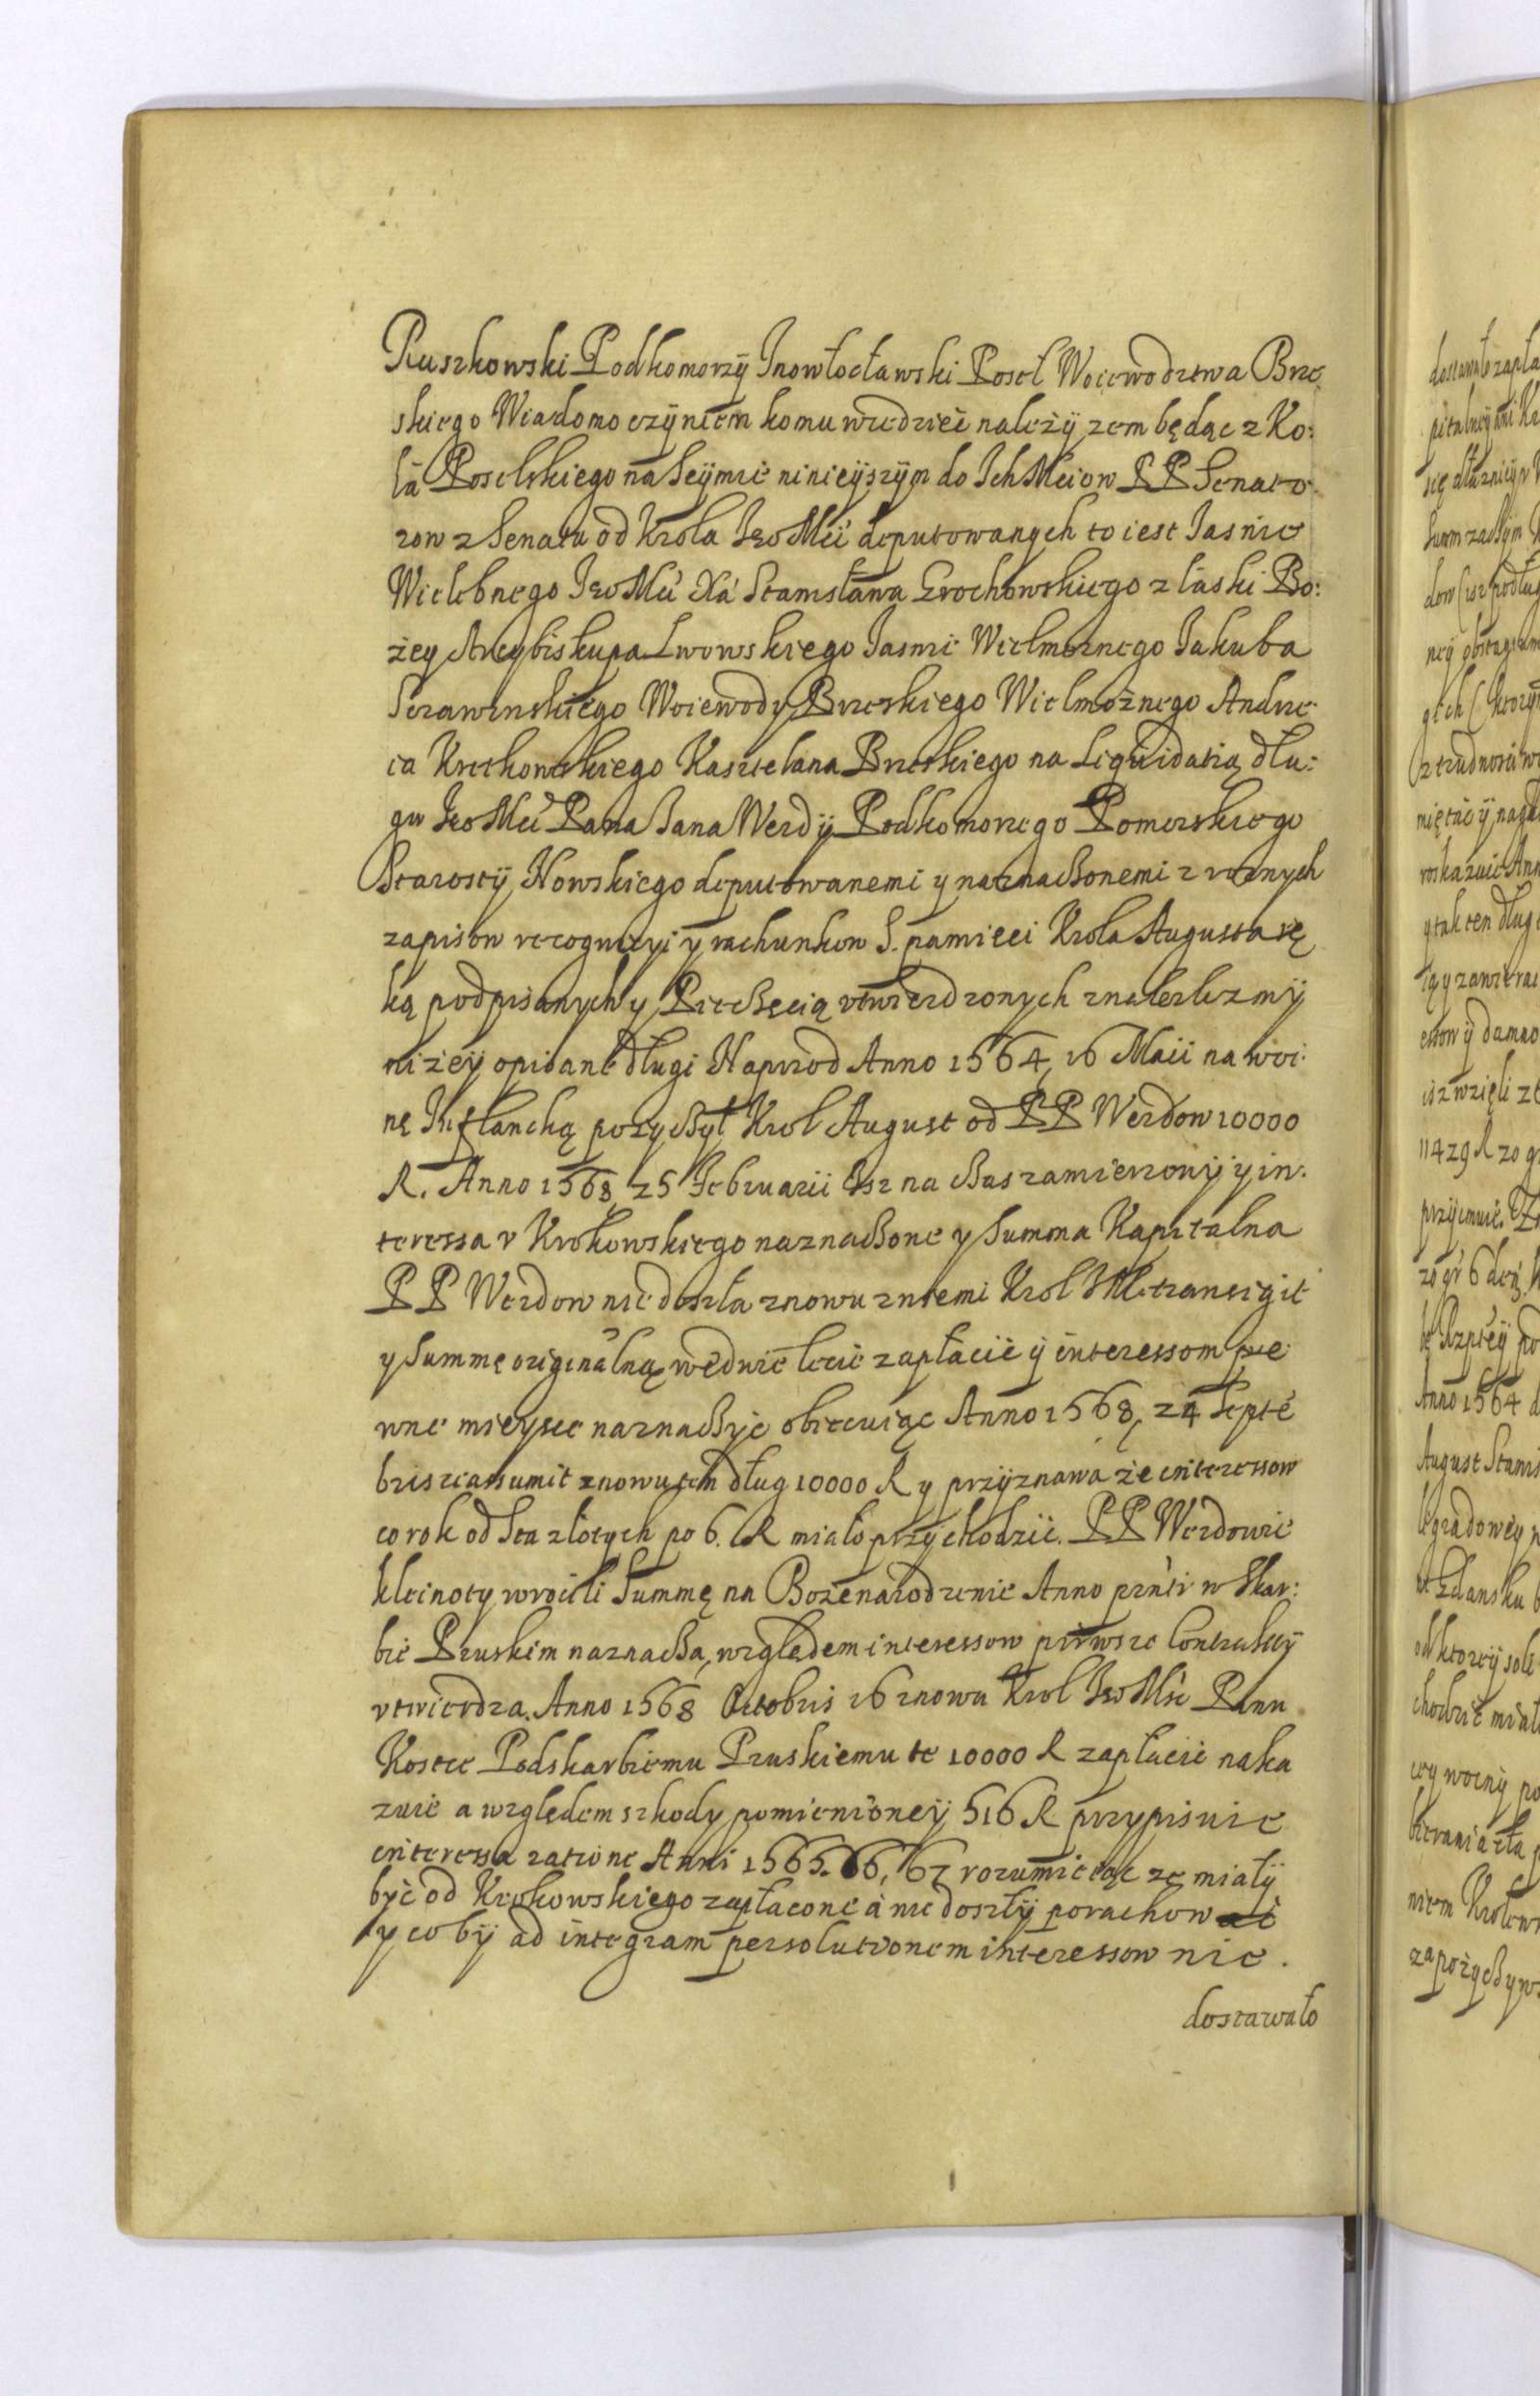 Ruszkowski Podkomorzÿ Inowłocławski Poseł Woiewodztwa Brze
skiego Wiadomo czÿniem komu wiedzieć należÿ zem będąc z Ko:
ła Poselskiego na Seÿmie ninieÿszÿm do Ich Mciow PP Senato
row z Senatu od Krola Jeo Mci deputowanych to iest Jasnie
Wielebnego Jeo Mci Xa Stanisława Grochowskiego z łaski Bo:
żey Arcybiskupa Lwowskiego Jasnie Wielmoznego Jakuba
Sczawinskiego Woiewody Brzeskiego Wielmożnego Andrze
ia Krethowskiego Kasztelana Brzeskiego na Liquidatią dłu:
gu Jeo Mci Pana Jana Werdÿ Podkomorzego Pomorskiego
Starostÿ Nowskiego deputowanemi y naznaczonemi z roznych
zapisow recognicyi y rachunkow S. pamieci Krola Augusta rę
ką podpisanych y Pieczęcią vtwierdzonych znalezlizmÿ
nizeÿ opisane długi Naprzod Anno 1564, 16 Maii na woi:
nę Inflancką pozyczÿł Krol August od PP Werdow 10000
R. Anno 1568, 25 Februarii Isz na czas zamierzonÿ ÿ in:
teressa v Krokowskiego naznaczone y Summa Kapitalna
PP Werdow nie doszła znowu zniemi Krol JM. transigit
y Summę originalną wednie lecie zapłacić ÿ interessom pie
wne mieysce naznaczyć obiecuiąc Anno 1568, 24 Septē
bris reassumit znowu tem dług 10000 R y przÿznawa że interessow
co rok od Sta złotych po 6. R miało przÿchodzić. PP Werdowie
kleinoty wrocili Summę na Boże narodzenie Anno pr̄nti w Skar:
bie Pruskim naznacza, względem interessow pierwsze Contraktÿ
vtwierdza. Anno 1568 Octobris 16 znowu Krol Jeo Mść Panu
Kostce Podskarbiemu Pruskiemu te 10000 R zapłacić naka
zuie a względem szkody pomienioneÿ 516 R przypisuie
interessa ratione Anni 1565. 66, 67 rozumieiąc ze miałÿ
być od Krokowskiego zapłacone a nie doszłÿ porachować
y co bÿ ad integram persolutionem interessow nie.
dostawało